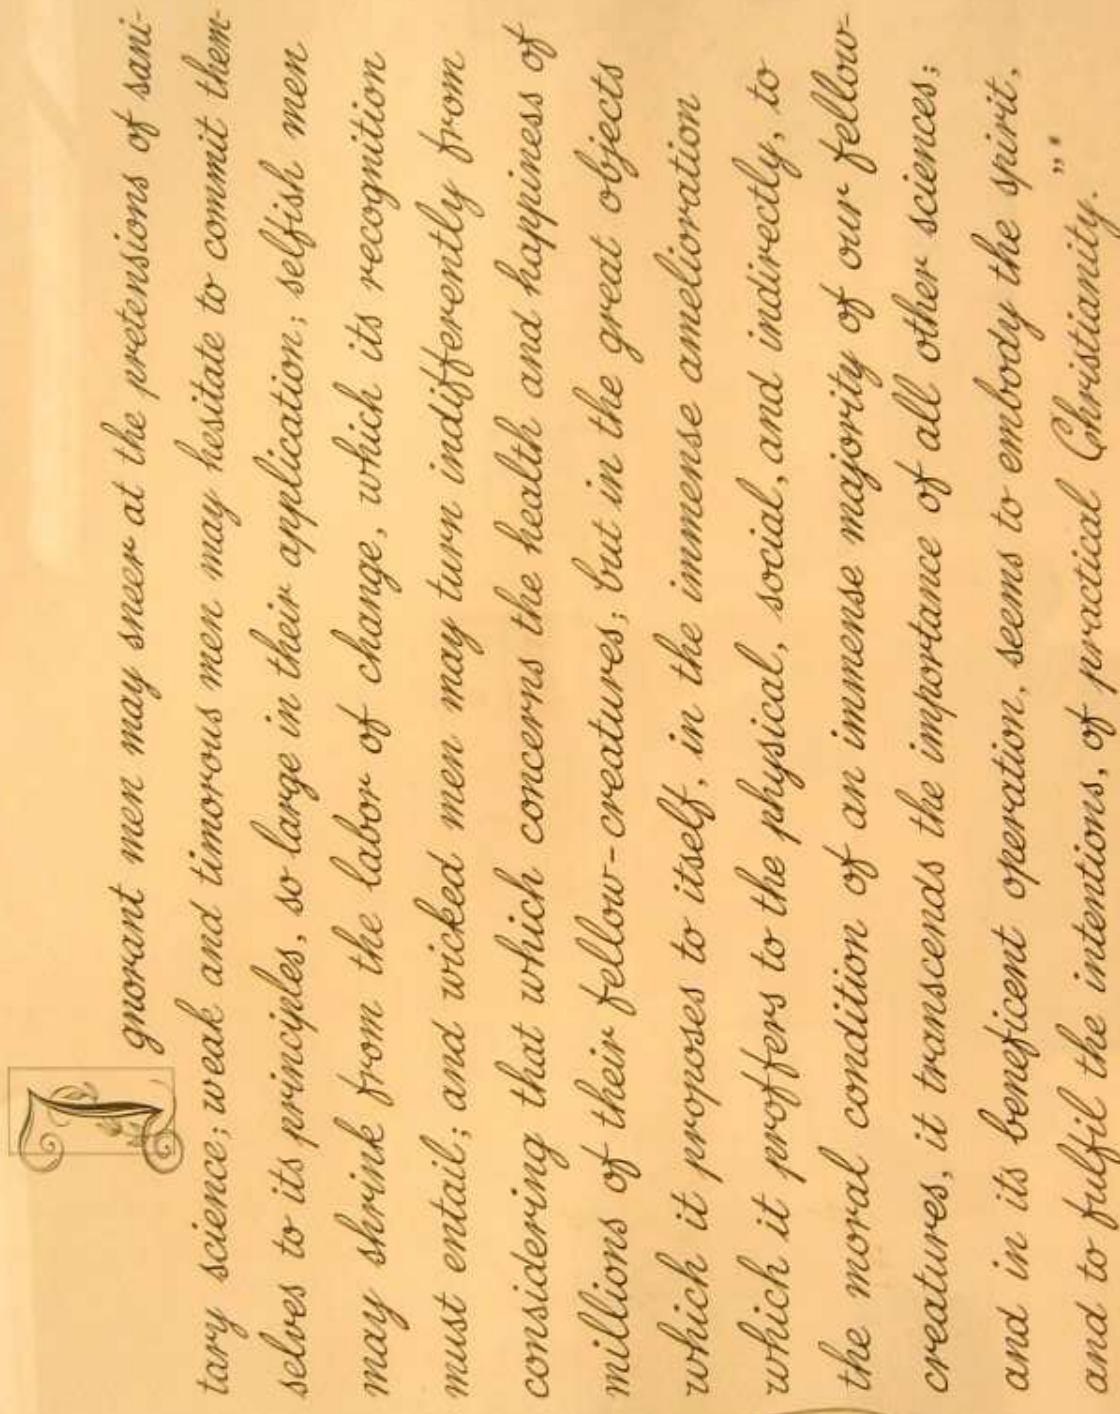 Ignorant men may sneer at the pretensions of sani-
tary science; weak and timorous men may hesitate to commit them-
selves to its principles, so large in their application; selfish men
may shrink from the labor of change, which its recognition
must entail; and wicked men may turn indifferently from
considering that which concerns the health and happiness of
millions of their fellow-creatures; but in the great objects
which it proposes to itself, in the immense amelioration
which it proffers to the physical, social, and indirectly, to
the moral condition of an immense majority of our fellow-
creatures, it transcends the importance of all other sciences;
and in its beneficent operation, seems to embody the spirit,
and to fulfil the intentions, of practical Christianity."*